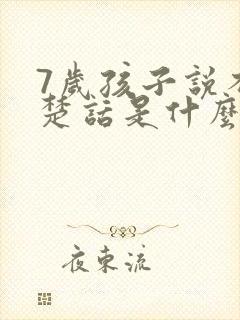 7歲孩子說不
楚話是什麼
夜束流